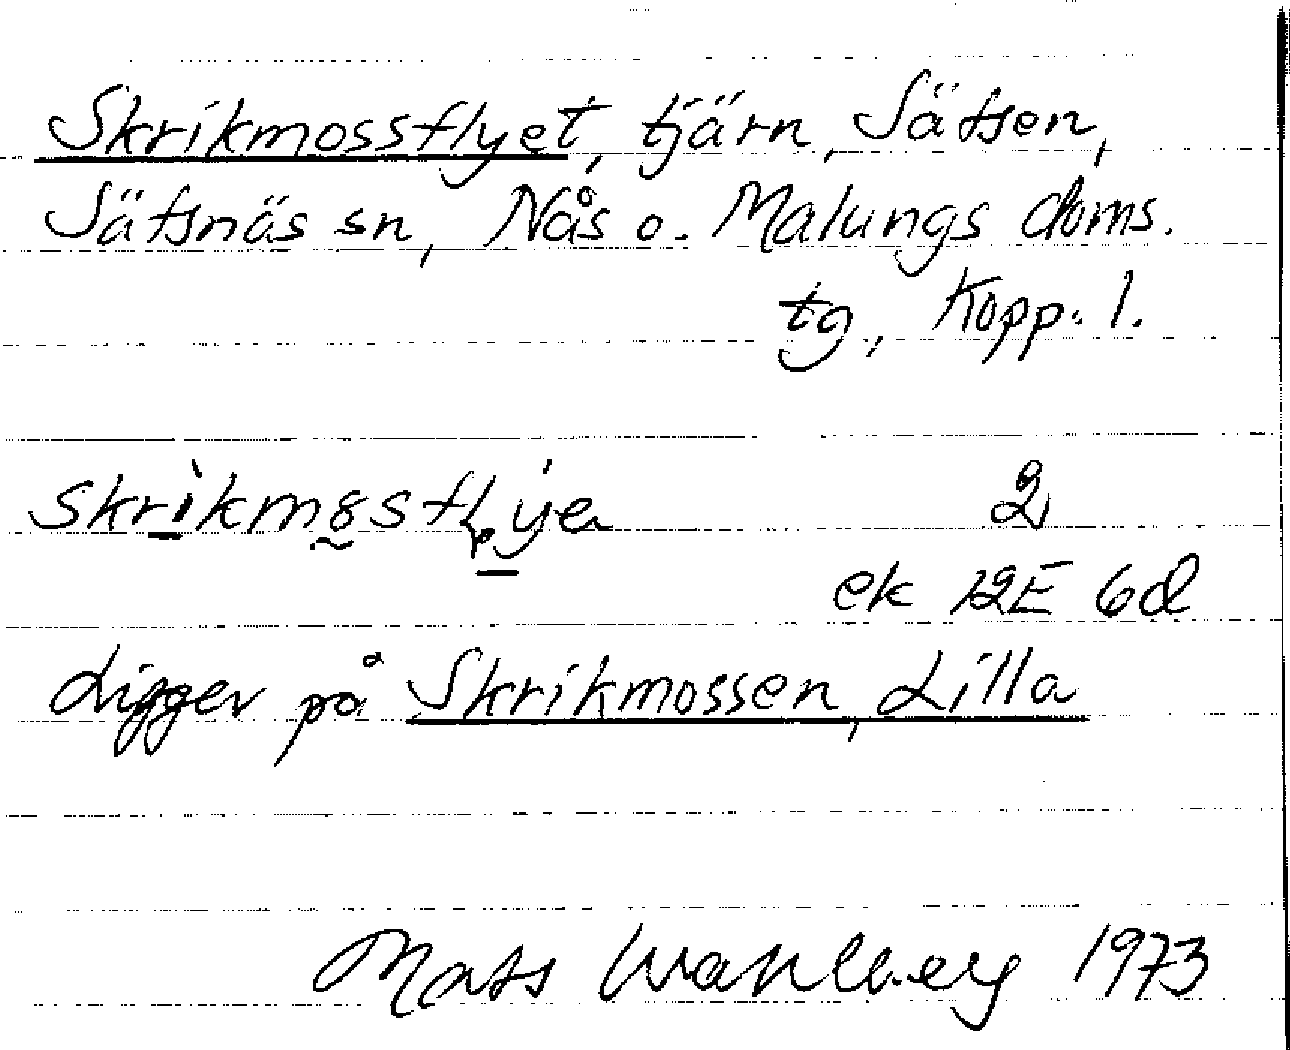 Skrikmossflyet, tjärn, Sätsen,
Sätsnäs sn, Nås o. Malungs doms.
tg, Kopp. l.
2
ek 12E 6d
Ligger på Skrikmossen, Lilla
Mats Wahlberg 1973